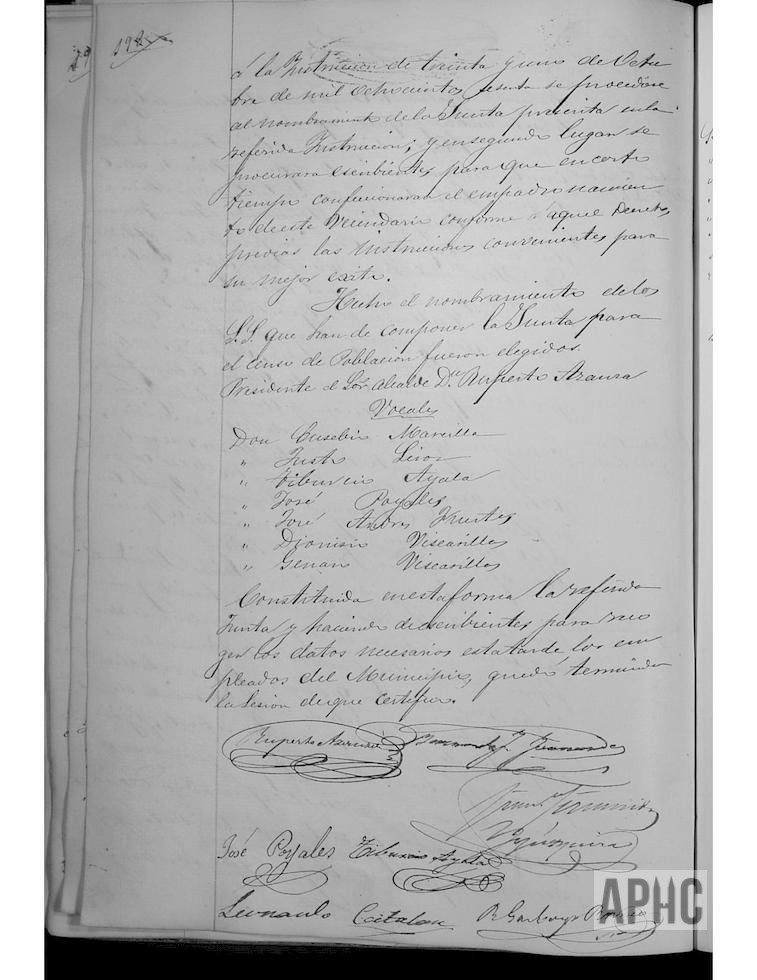 192
á la Instruccion de treinta y uno de Octu
bre de mil ochocientos sesenta se procediese
al nombramiento de la Junta prescrita en la
referida Instruccion; y en segundo lugar se
procurara escribientes para que en corto
tiempo confeccionaran el empadronamien
to de este Vecindario conforme á aquel Decreto,
previas las instrucciones convenientes para
su mejor exito.
Hecho el nombramiento de los
S.S. que han de componer la Junta para
el censo de Poblacion fueron elegidos.
Presidente el Sor. Alcalde Dn. Ruperto Azanza
Vocales
Don Eusebio Marcilla
" Justo
" Tiburcio Ayala
" José Poyales
" José Andres Fuertes
" Dionisio Viscasillas
" Genaro Viscasillas
Constituida en esta forma la referida
Junta y haciendo de escribientes para reco
ger los datos necesarios estatarde los em
pleados del Municipio, quedó terminada
la Sesion de que certifico.
Ruperto Azanza
José Poyales Tiburcio Ayala
Leonardo Catalan
APHC